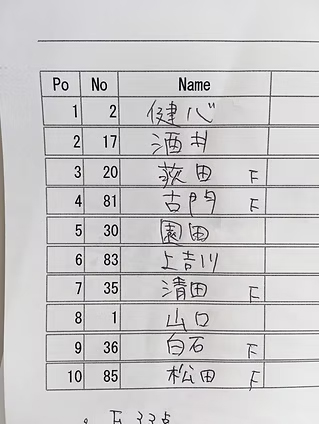 Po No Name
1 2 健心
2 17 酒井
3 20 荻田 F
4 81 古門 F
5 30 園田
6 83 上吉川
7 35 清田 F
8 1 山口
9 36 白石 F
10 85 松田 F